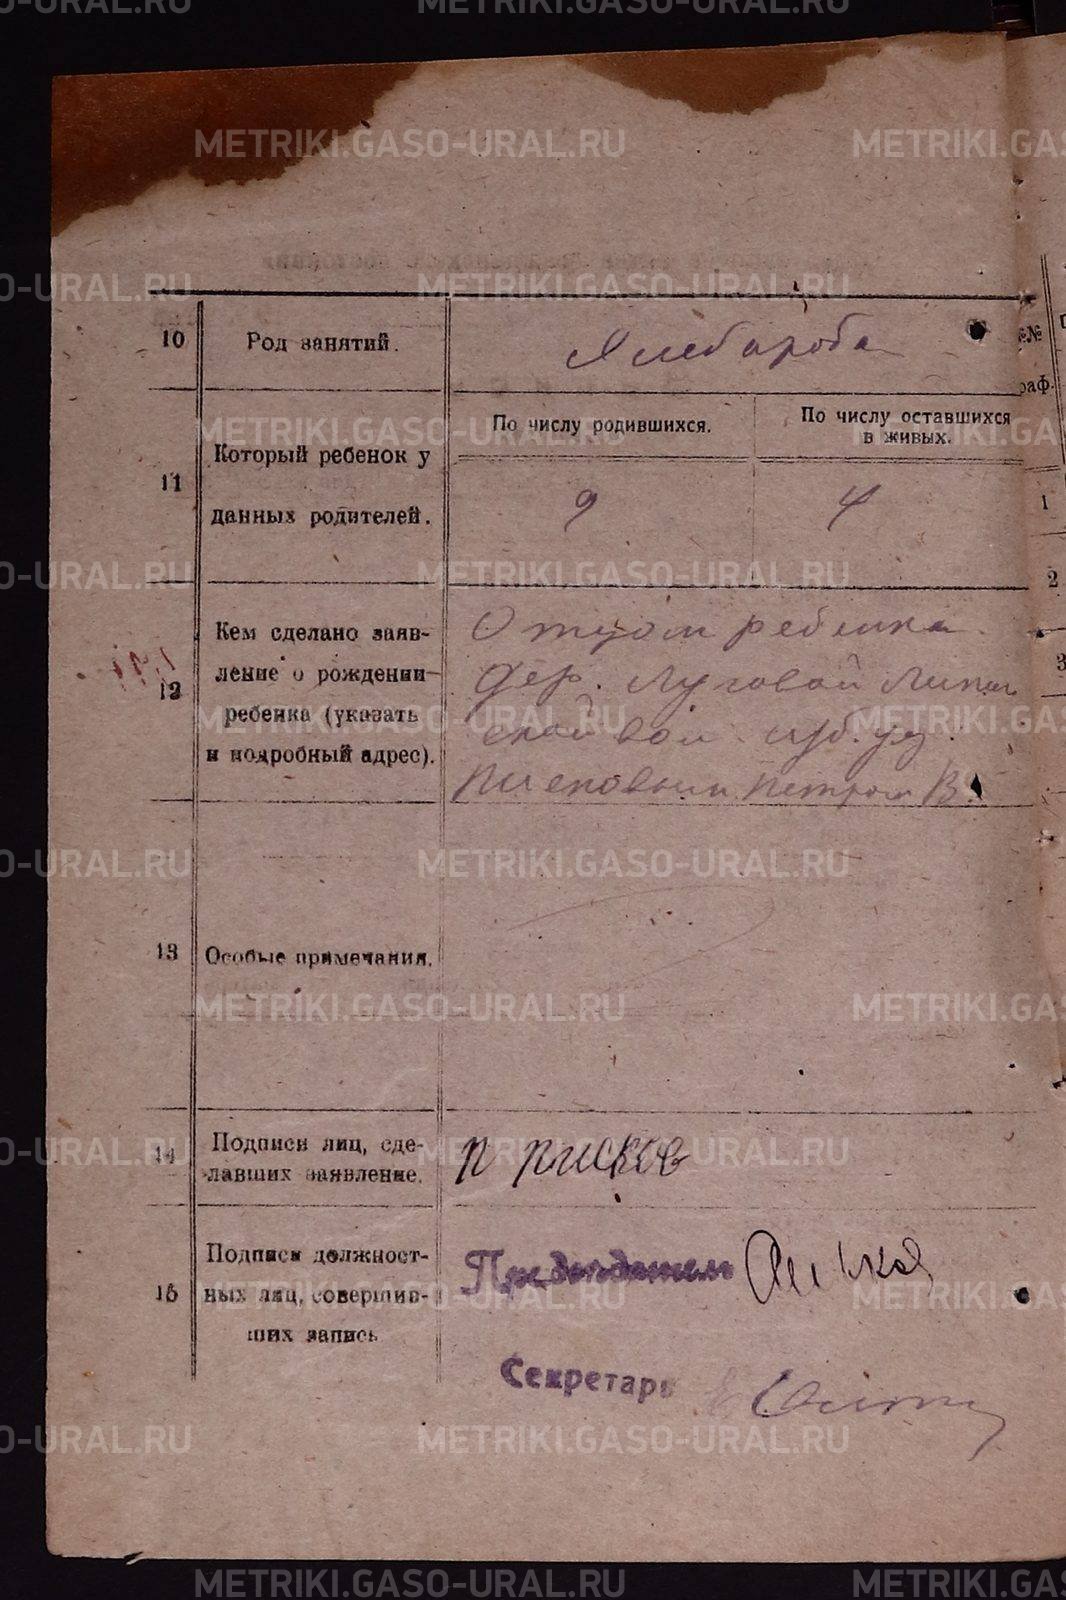 METRIKI.GASO-URAL.RU
10 Род занятий. Хлебароба
11 Который ребенок у данных родителей.
По числу родившихся. По числу оставшихся
в живых.
9 4
12 Кем сделано заяв-
ление о рождении
ребенка (указать
и подробный адрес).
Отцом ребенка
дер. Луговой
ской вол.
Писковым Петром В.
13 Особые примечания.
14 Подписи лиц, сде-
лавших заявление.
П Писков
15 Подписи должност-
ных лиц, совершив-
ших запись
Председатель
Секретарь
№№
раф.
1
2
3